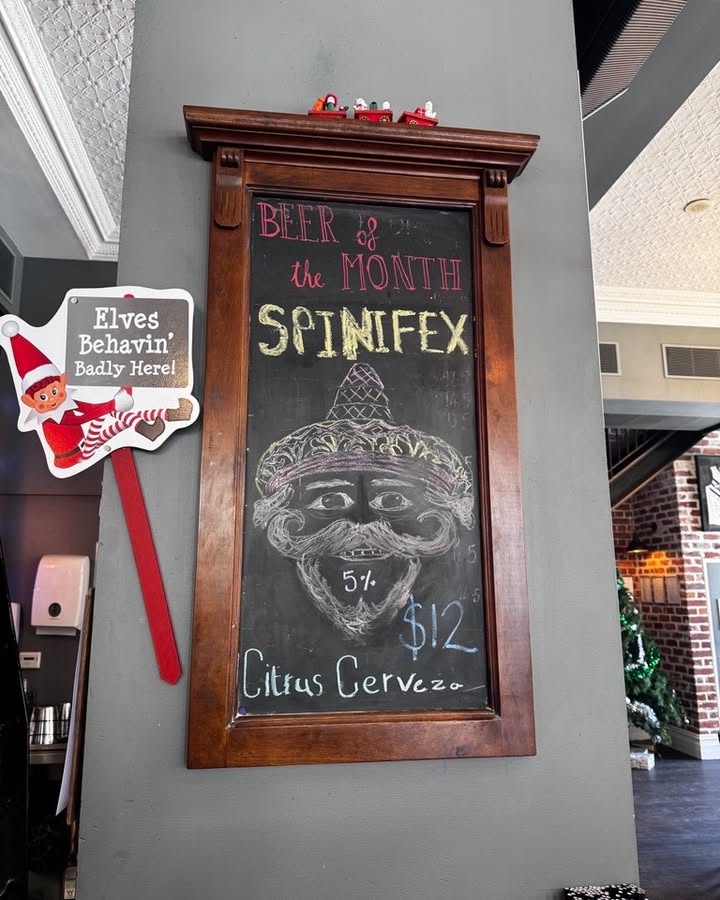 BEER of
the MONTH
SPINIFEX
5%
$12
Citrus Cerveza
Elves
Behavin'
Badly Here!